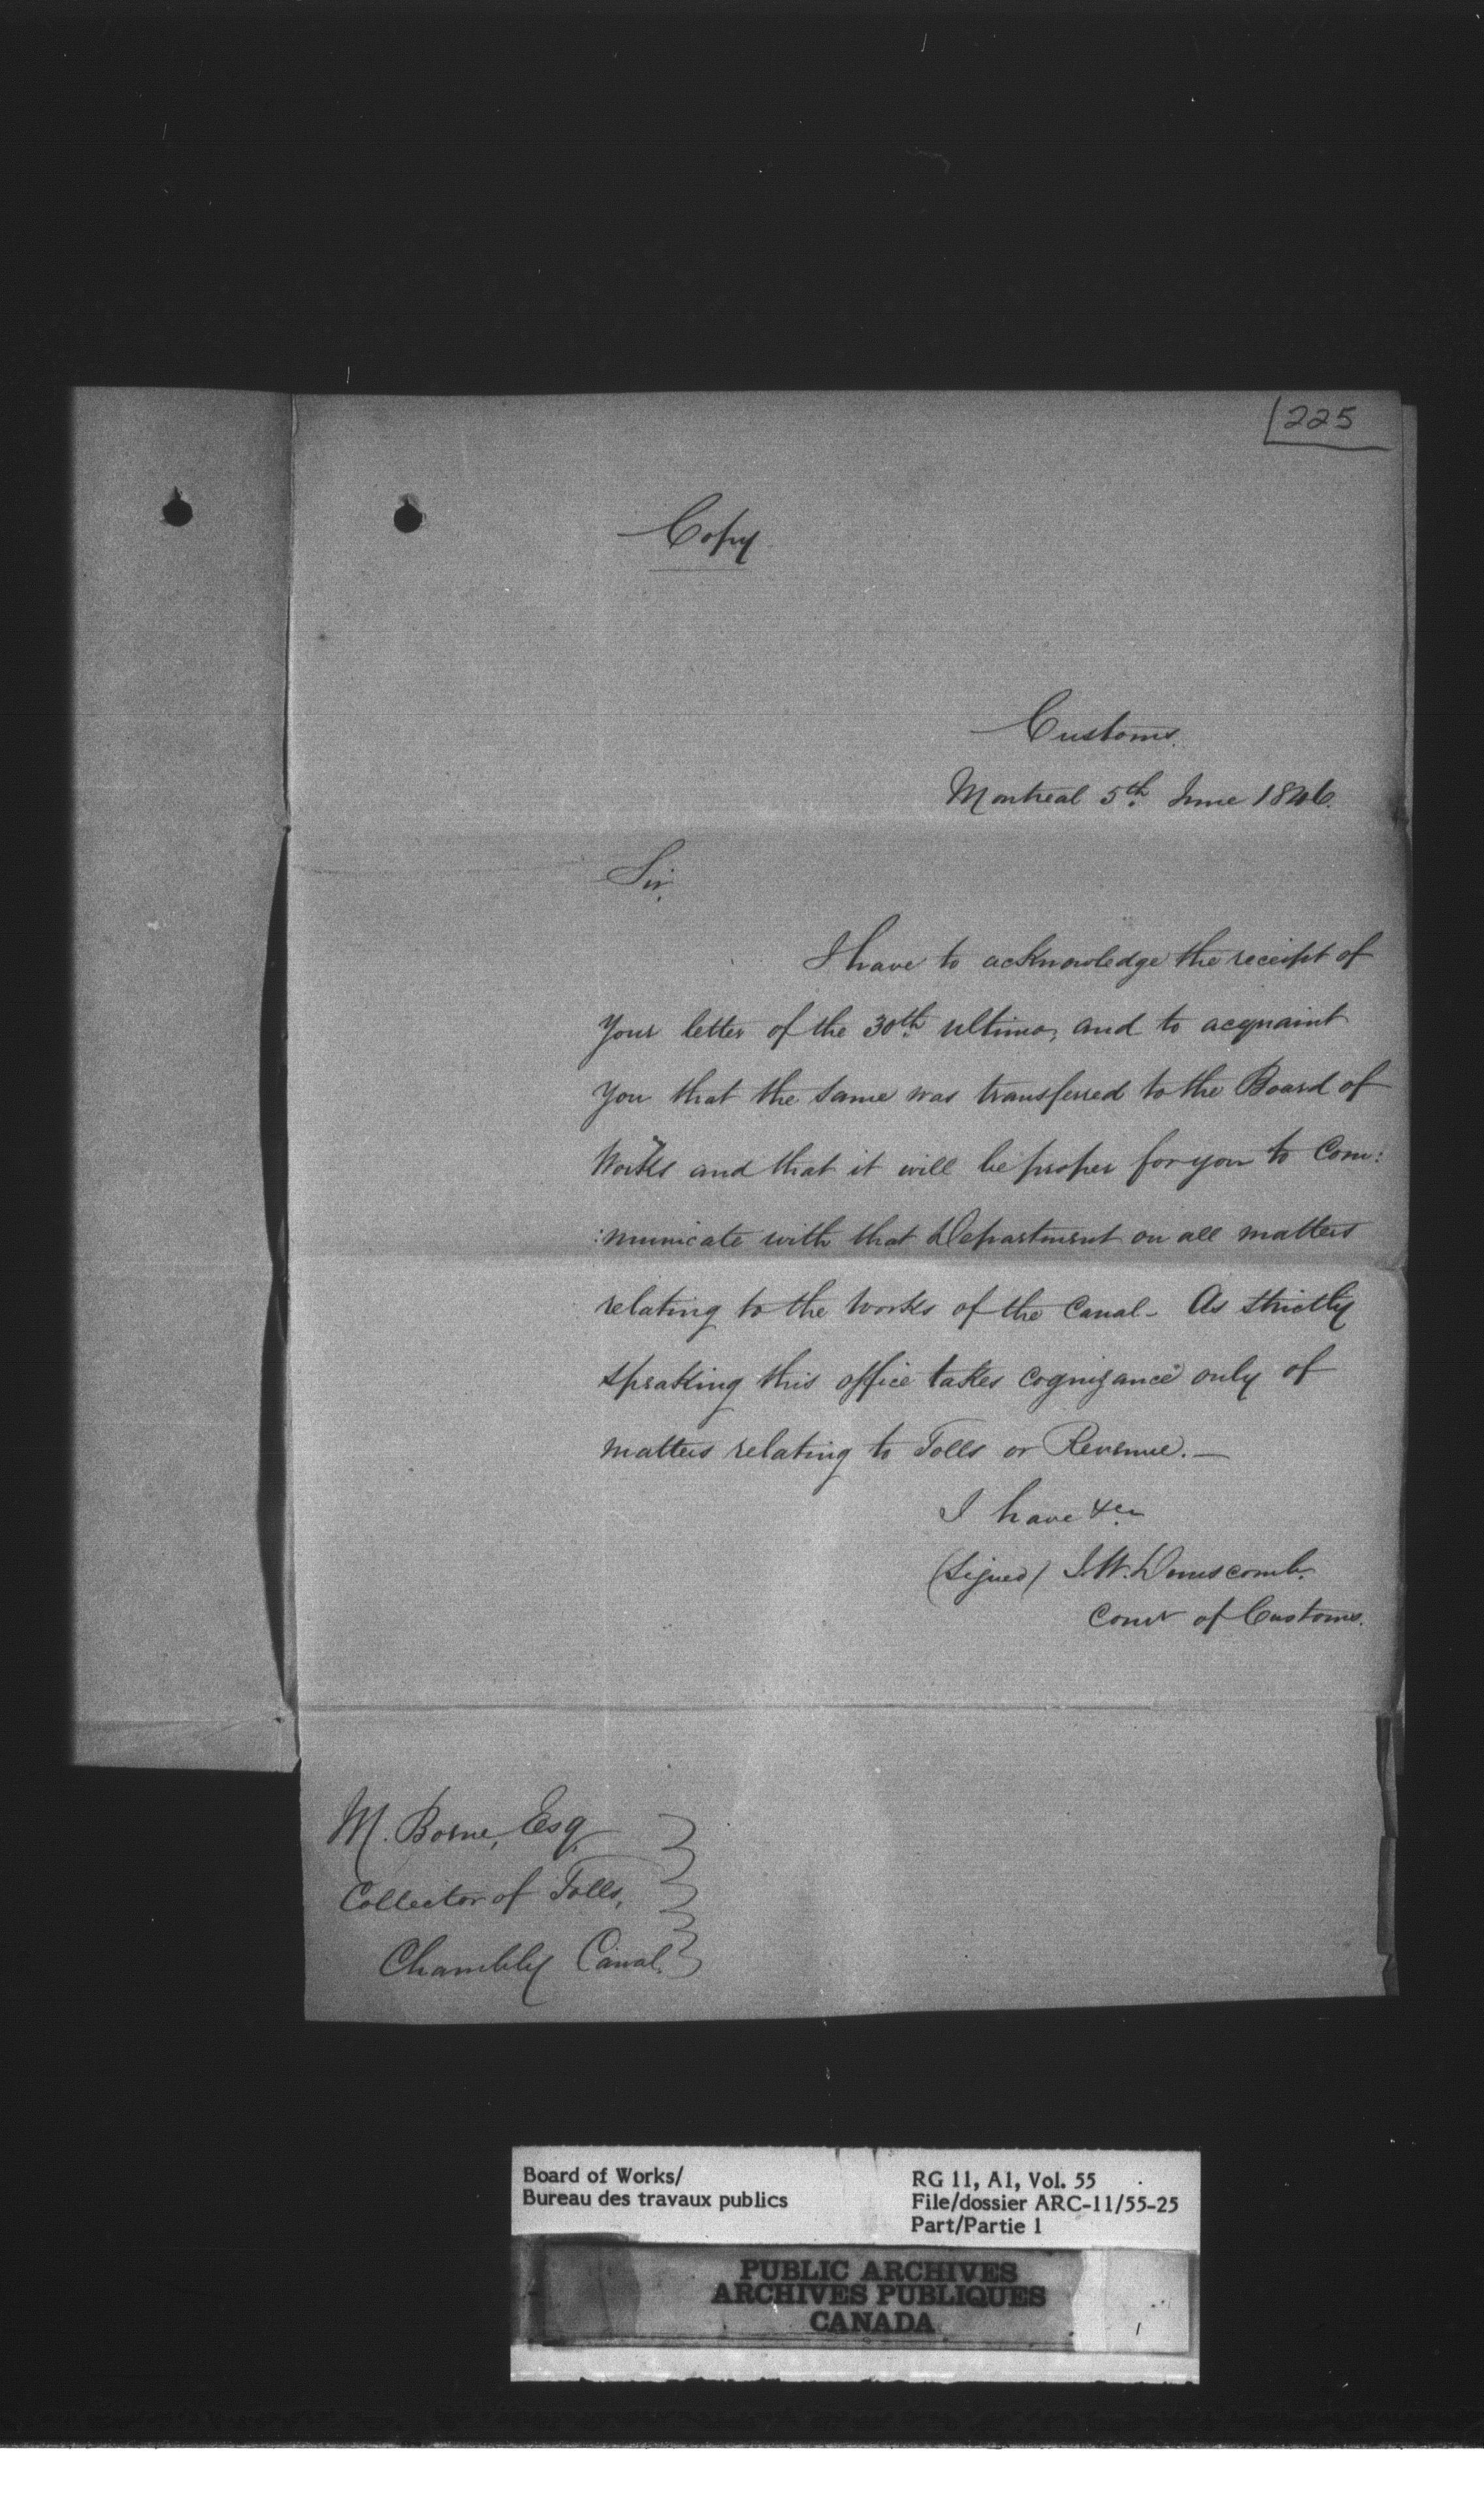 225
Copy
Customs.
Montreal 5th June 1846.
Sir,
I have to acknowledge the receipt of
your letter of the 30th ultimo, and to acquaint
you that the same was transferred to the Board of
Works and that it will be proper for you to Com:
:municate with that Department on all matters
relating to the works of the Canal - As strictly
speaking this office takes cognizance only of
matters relating to Tolls or Revenue. —
I have &c
(Signed) J.W. Dunscomb.
Comr of Customs.
M. Borne, Esq.
Collector of Tolls,
Chambly Canal.
Board of Works/
Bureau des travaux publics
RG 11, A1, Vol. 55
File/dossier ARC-11/55-25
Part/Partie 1
PUBLIC ARCHIVES
ARCHIVES PUBLIQUES
CANADA